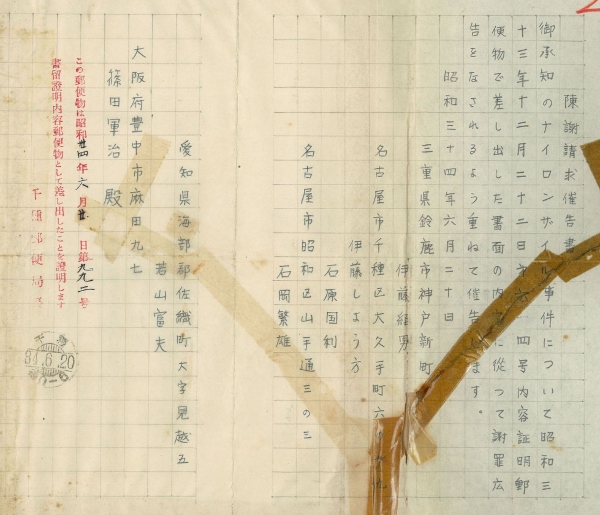 陳謝請求催告書
御承知のナイロンザイル事件について昭和三
十三年十二月二十二日
四号内容証明郵
便物で差し出した書面の内容に従つて謝罪広
告をなされるよう重ねて催告します。
昭和三十四年六月二十日
三重県鈴鹿市神戸新町
伊藤経男
名古屋市千種区大久手町六
伊藤しよう方
石原国利
名古屋市昭和区山手通三の三
石岡繁雄
愛知県海部郡佐織町大字見越五
若山富夫
大阪府豊中市麻田九七
篠田軍治殿
この郵便物は昭和卅四年六月廿日第九九二号
書留證明内容郵便物として差し出したことを證明します
千種郵便局
千種
34.6.20